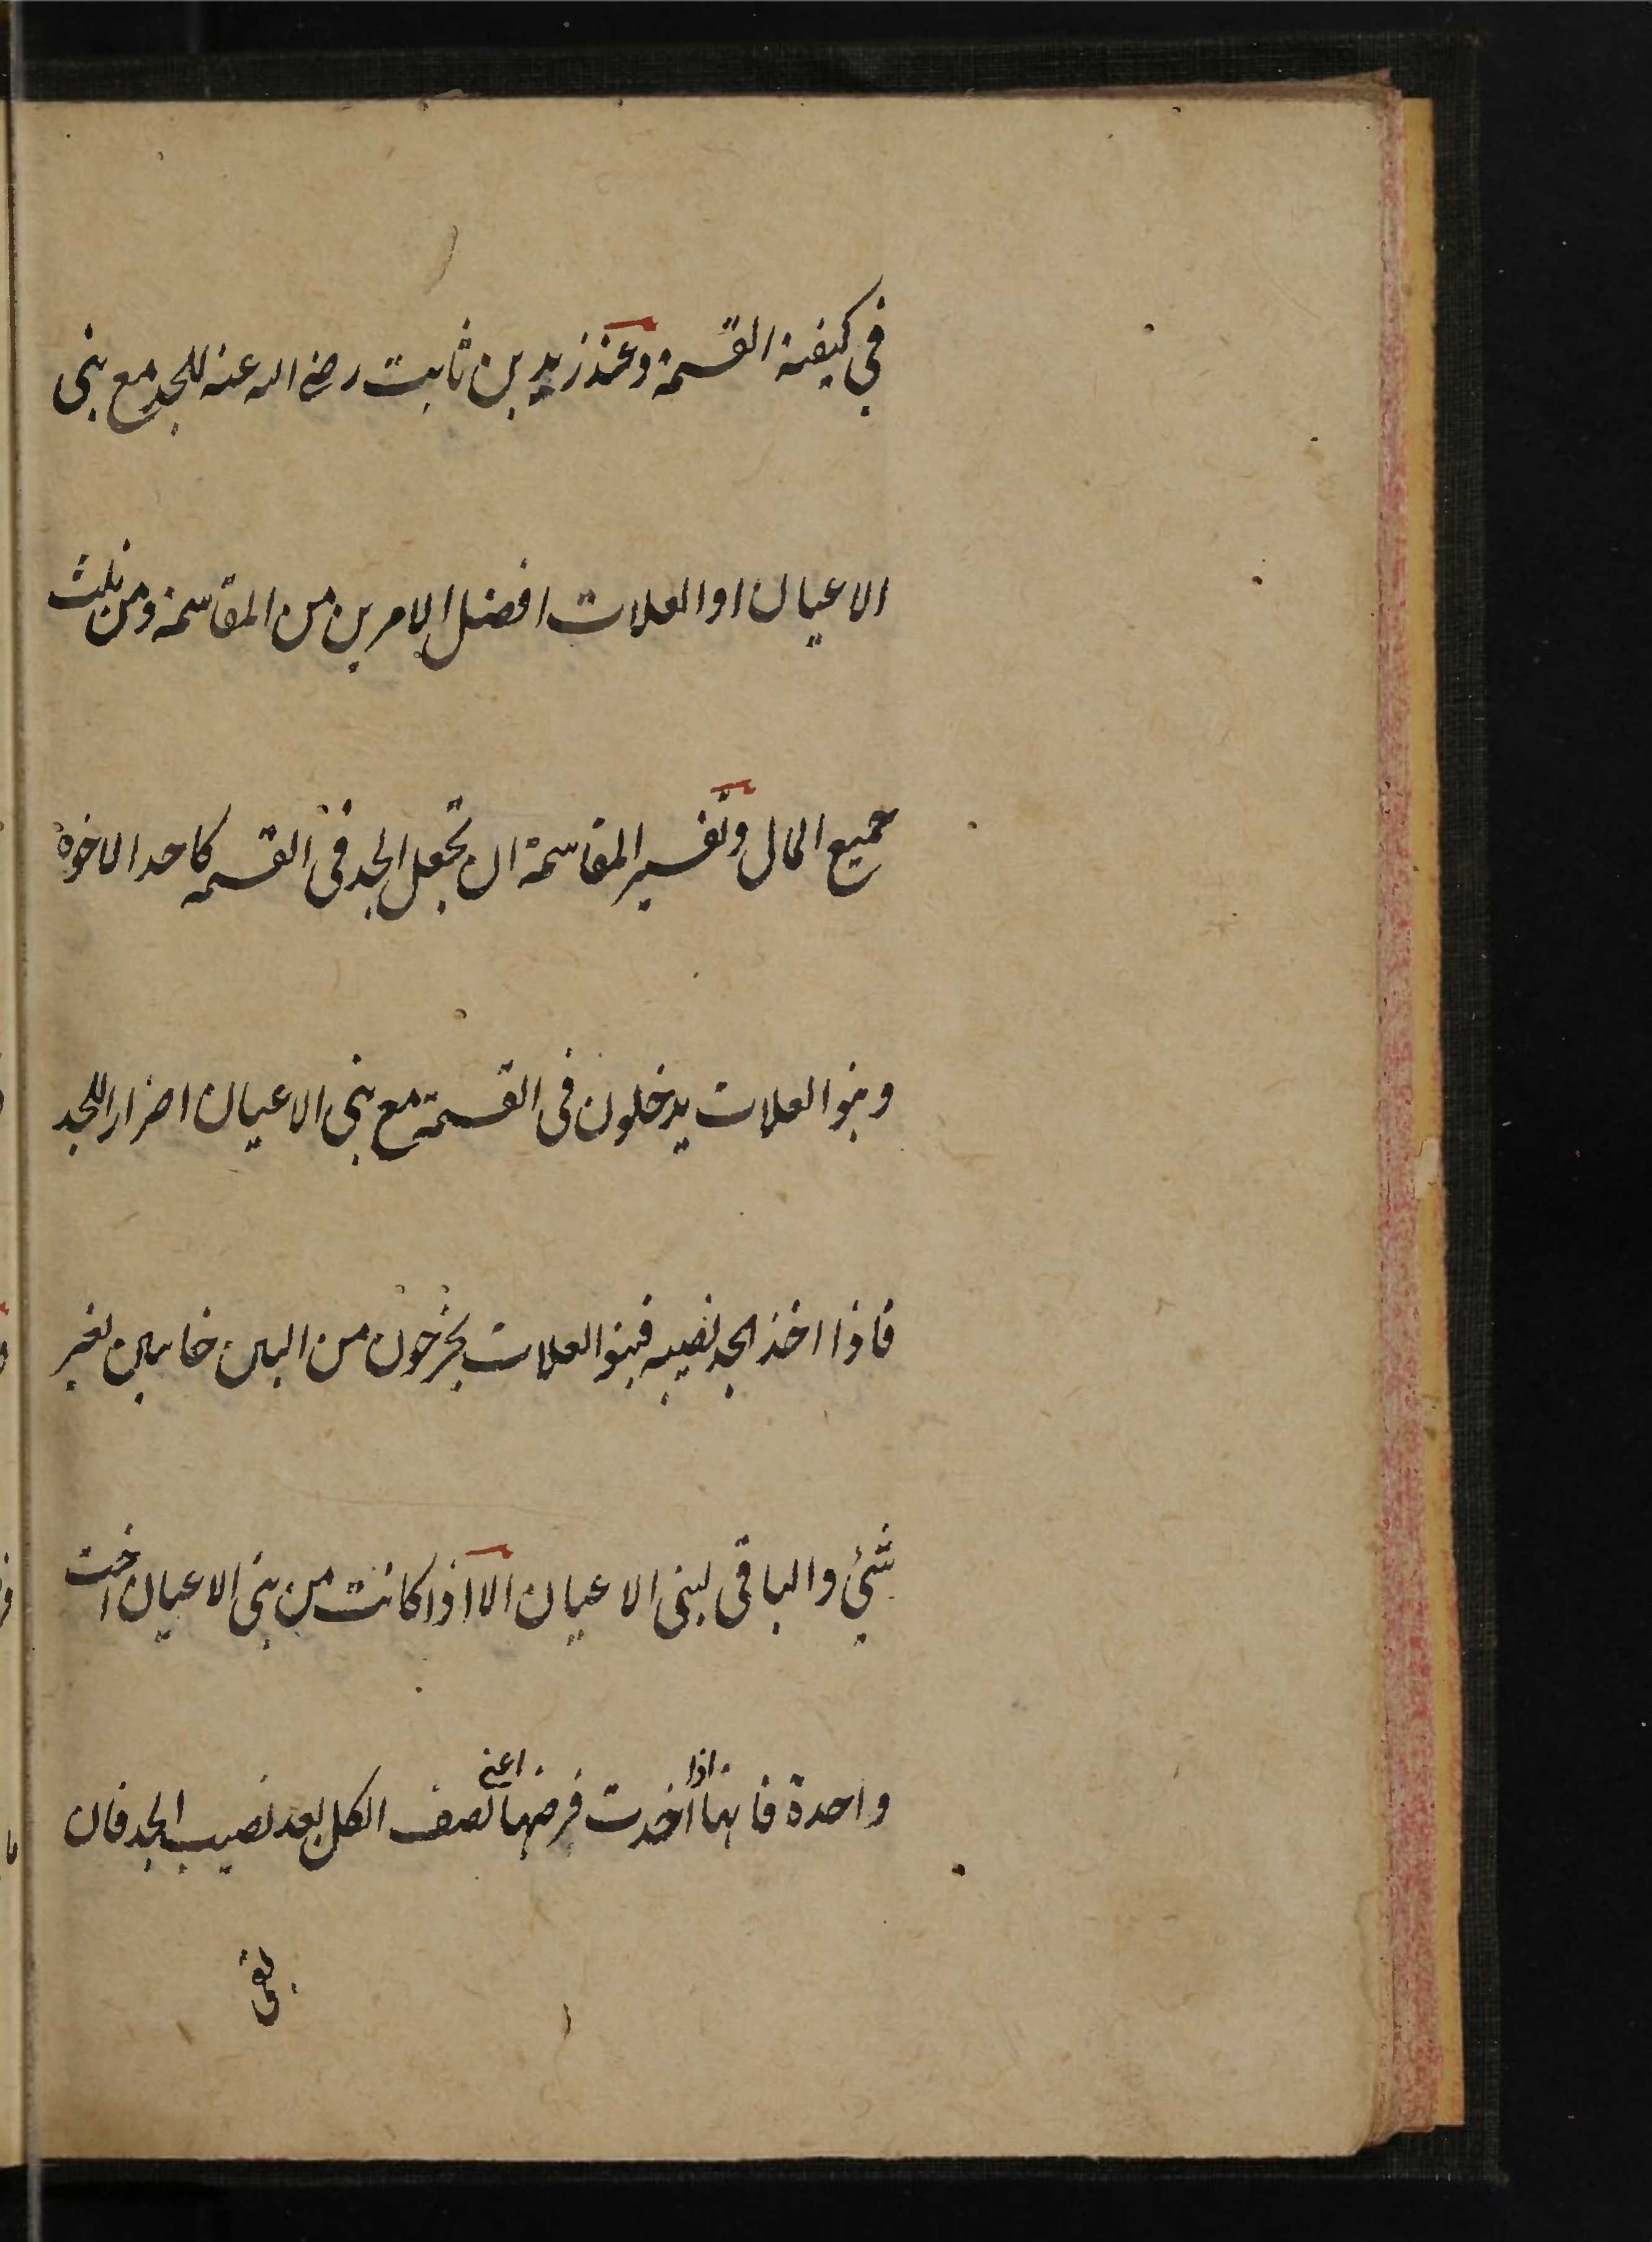 في كيفية القسمة وعند زيد بن ثابت رضى الله عنه للجد مع بنى
الاعيان او العلات افضل الامرين من المقاسمة ومن ثلث
جميع المال وتفسير المقاسمة ان تجعل الجد فى القسمه كاحد الاخوة
وبنوا العلات يدخلون فى القسمة مع بنى الاعيان اضرارا للجد
فاذا اخذ الجد نصيبه فبنوا العلات يخرجون من البين خايبين بغير
شئ والباقى لبنى الاعيان الا اذا كانت من بنى الاعيان اخت
واحدة فانها اذا اخذت فرضها اعنى نصف الكل بعد نصيب الجد فان
بقى